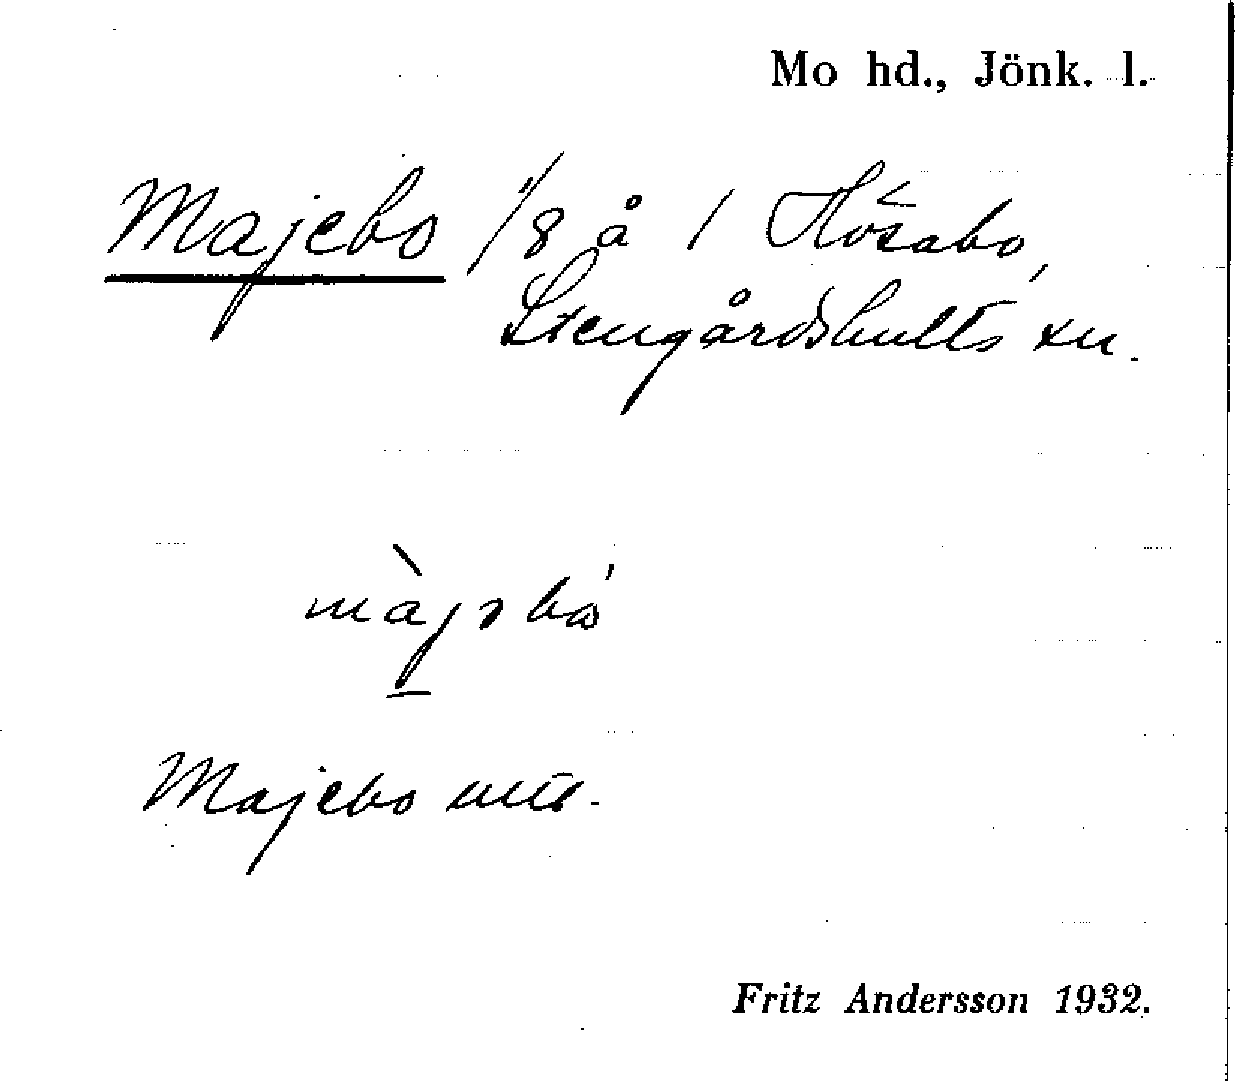 Mo hd., Jönk. l.
Majebo 1/8 å 1 Hösabo,
Stengårdshults sn.
màjəbo'
Majebo
Fritz Andersson 1932.